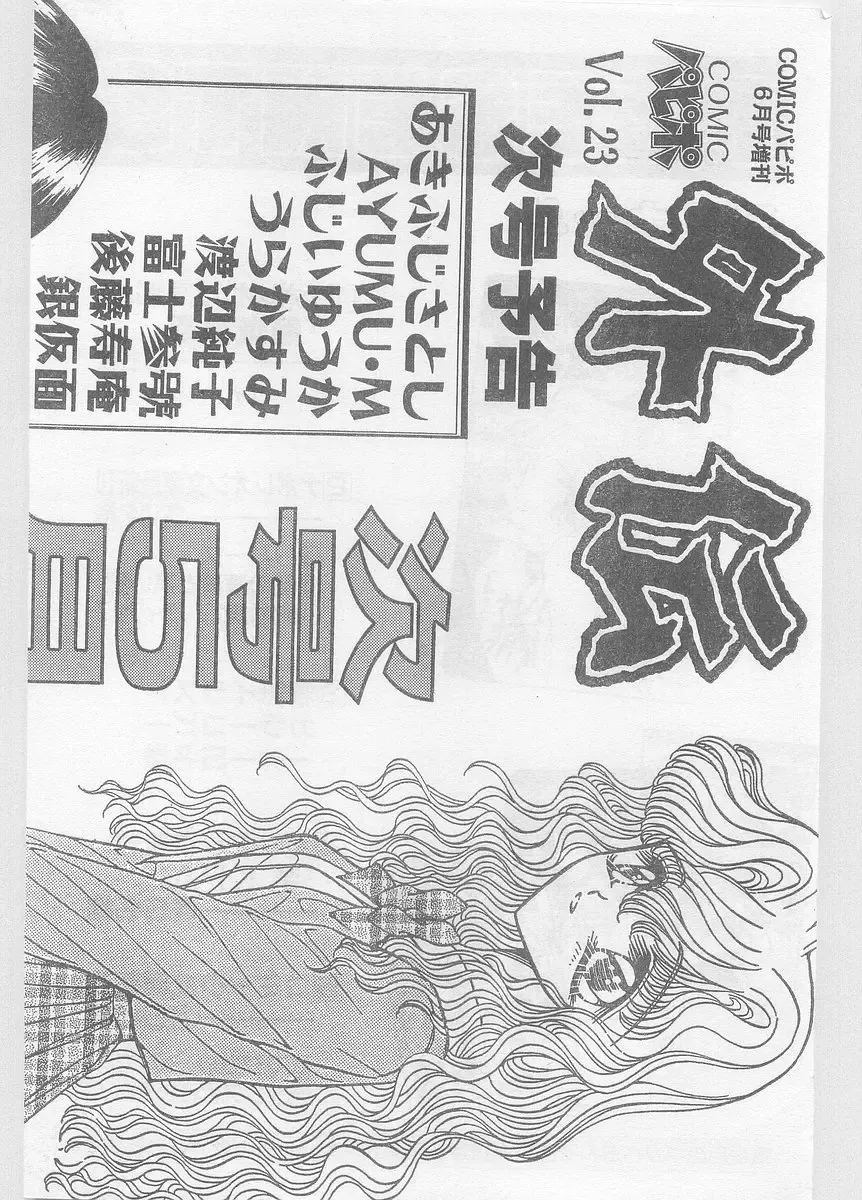 COMICパピポ
6月号増刊
COMIC
パピポ
外伝
Vol. 23
次号予告
あきふじさとし
AYUMU・M
ふじいゆうか
うらかすみ
渡辺純子
富士参號
後藤寿庵
銀仮面
次号5月